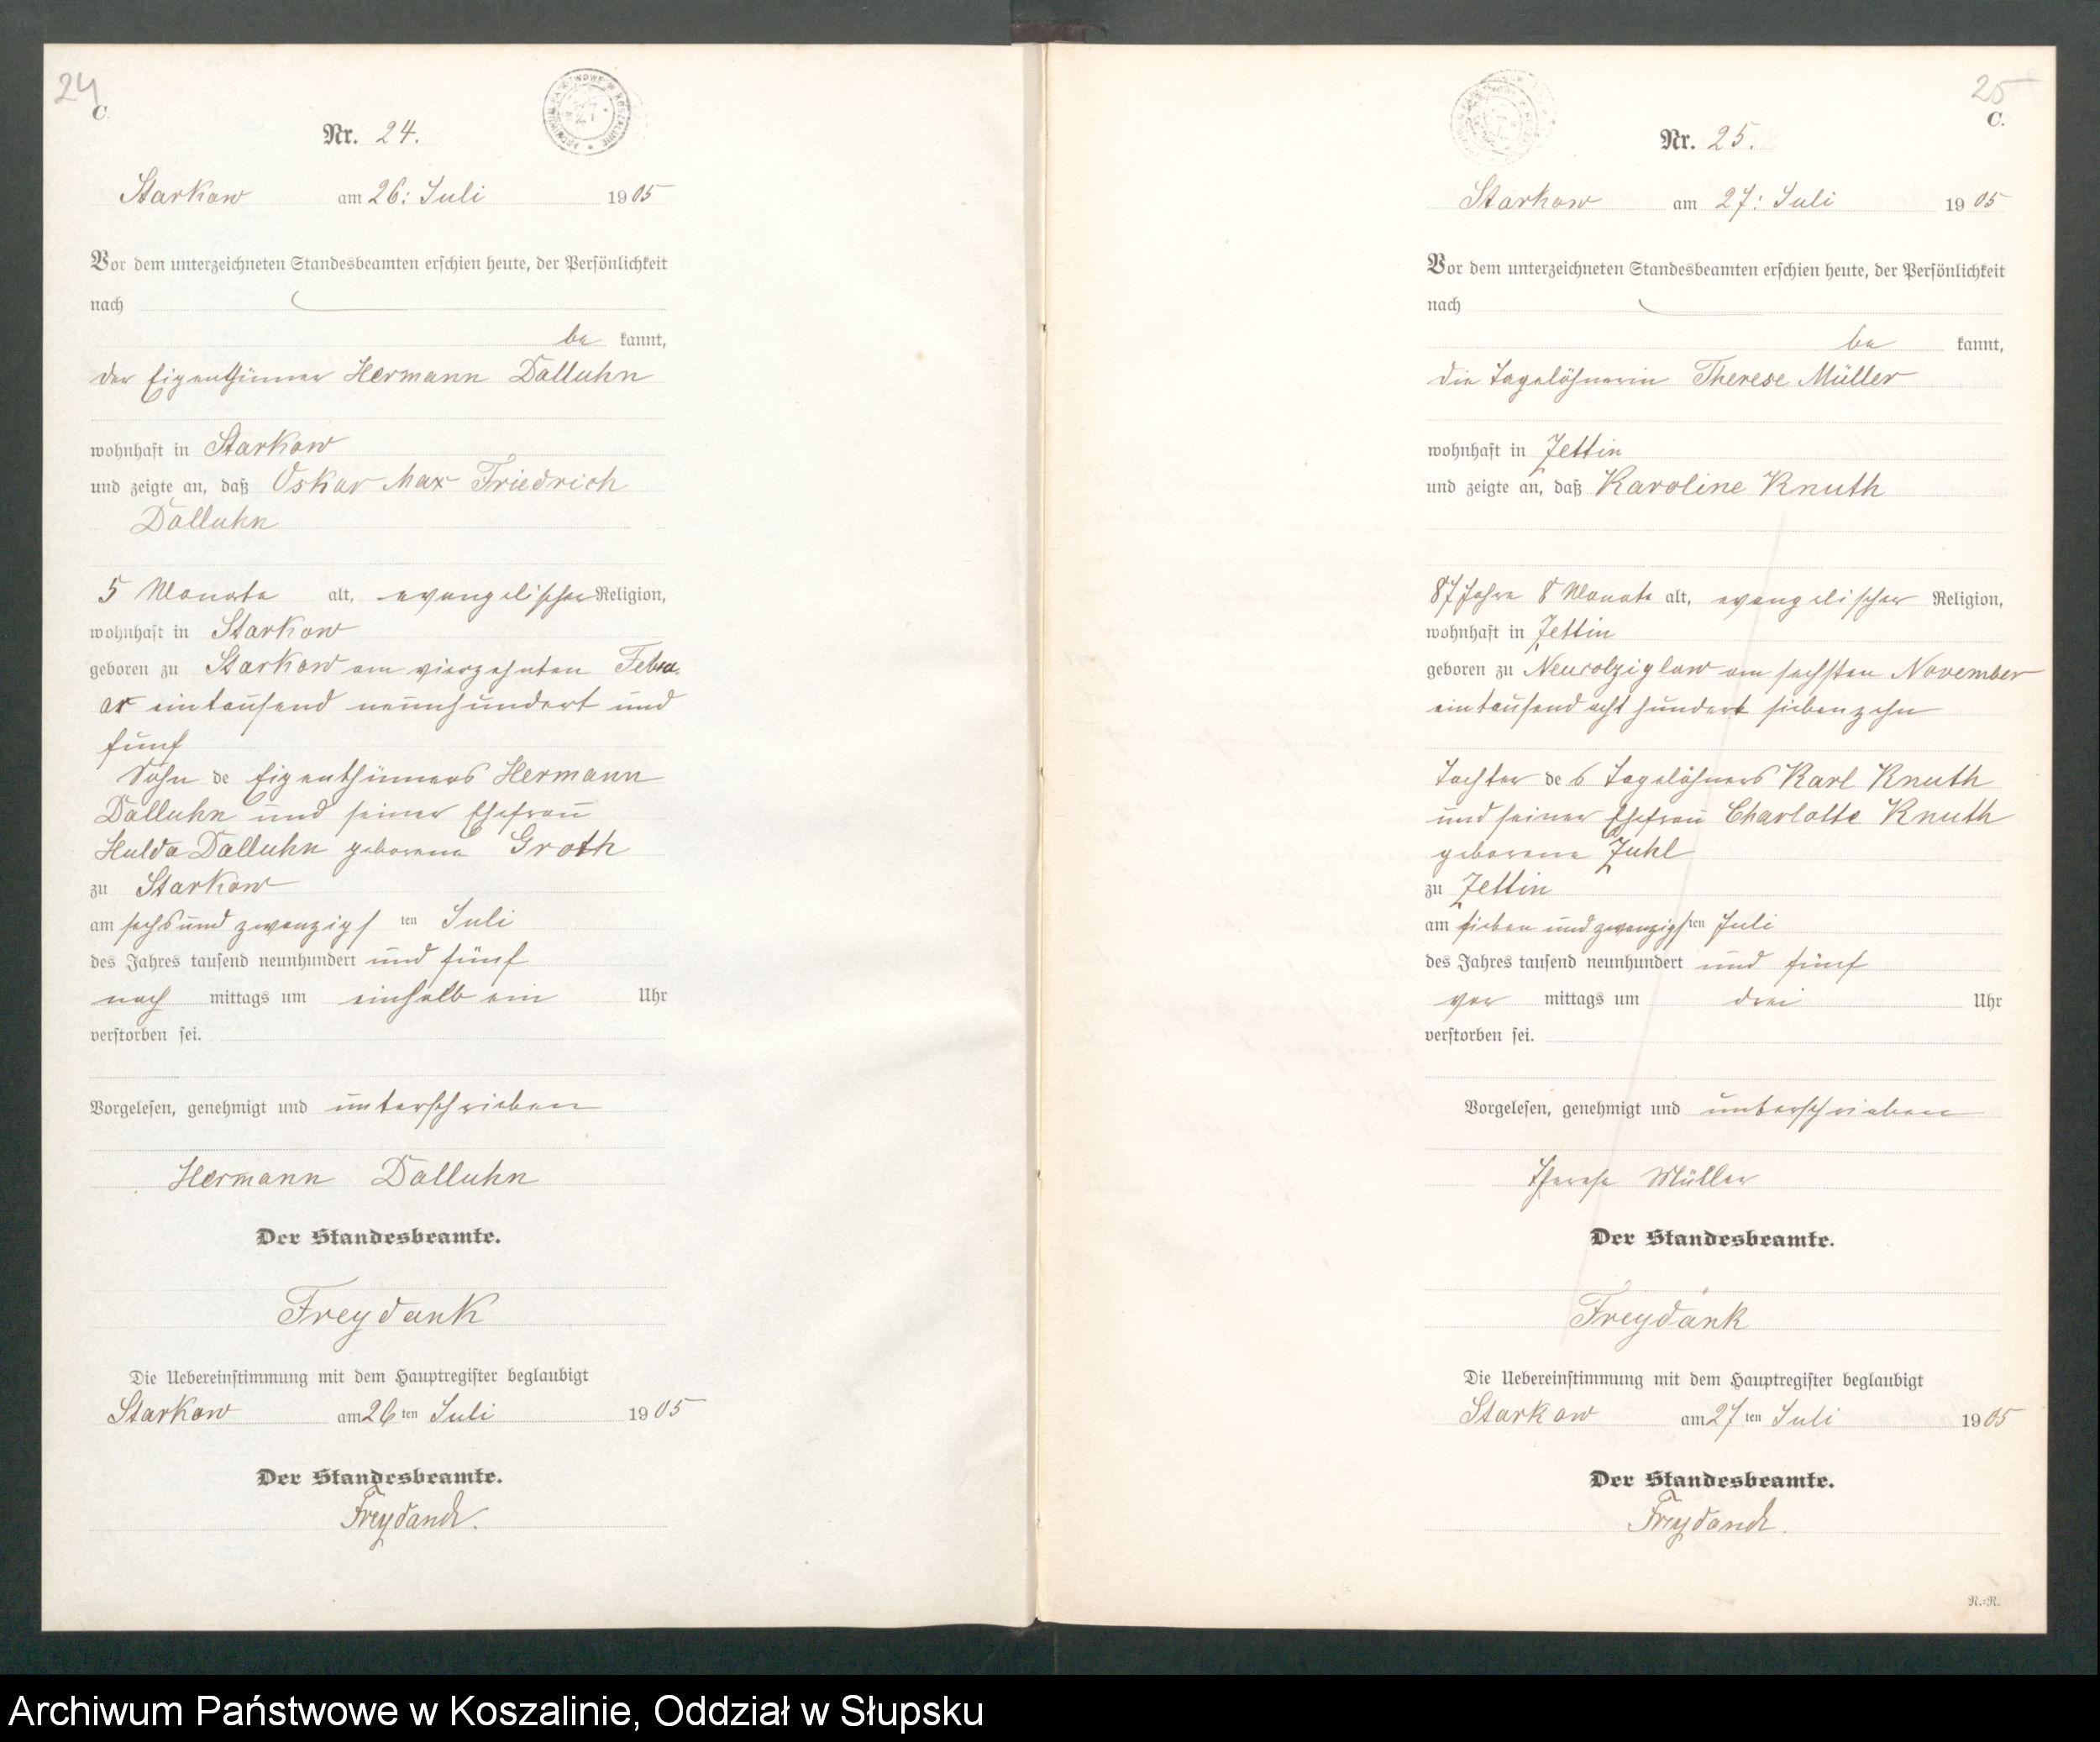 24
C.
Nr. 24.
Starkow am 26: Juli 1905
Vor dem unterzeichneten Standesbeamten erschien heute, der Persönlichkeit
nach
be kannt,
der Eigenthümer Hermann Dalluhn
wohnhaft in Starkow
und zeigte an, daß Oskar Max Friedrich
Dalluhn
5 Monate alt, evangelischer Religion,
wohnhaft in Starkow
geboren zu Starkow am vierzehnten Febru-
ar eintausend neunhundert und
fünf
Sohn de Eigenthümers Hermann
Dalluhn und seiner Ehefrau
Hulda Dalluhn geborene Groth
zu Starkow
am sechsundzwanzigsten Juli
des Jahres tausend neunhundert und fünf
nach mittags um einhalb ein Uhr
verstorben sei.
Vorgelesen, genehmigt und unterschrieben
Hermann Dalluhn
Der Standesbeamte.
Freydank
Die Uebereinstimmung mit dem Hauptregister beglaubigt
Starkow am 26ten Juli 1905
Der Standesbeamte.
Freydank.
25
C.
Nr. 25.
Starkow am 27: Juli 1905
Vor dem unterzeichneten Standesbeamten erschien heute, der Persönlichkeit
nach
be kannt,
die Tagelöhnerin Therese Müller
wohnhaft in Zettin
und zeigte an, daß Karoline Knuth
87 Jahre 8 Monate alt, evangelischer Religion,
wohnhaft in Zettin
geboren zu Neukolziglow am sechsten November
eintausend acht hundert siebenzehn
Tochter des Tagelöhners Karl Knuth
und seiner Ehefrau Charlotte Knuth
geborene Zuhl
zu Zettin
am sieben und zwanzigsten Juli
des Jahres tausend neunhundert und fünf
vor mittags um drei Uhr
verstorben sei.
Vorgelesen, genehmigt und unterschrieben
Therese Müller
Der Standesbeamte.
Freydank
Die Uebereinstimmung mit dem Hauptregister beglaubigt
Starkow am 27ten Juli 1905
Der Standesbeamte.
Freydank.
R.-R.
Archiwum Państwowe w Koszalinie, Oddział w Słupsku